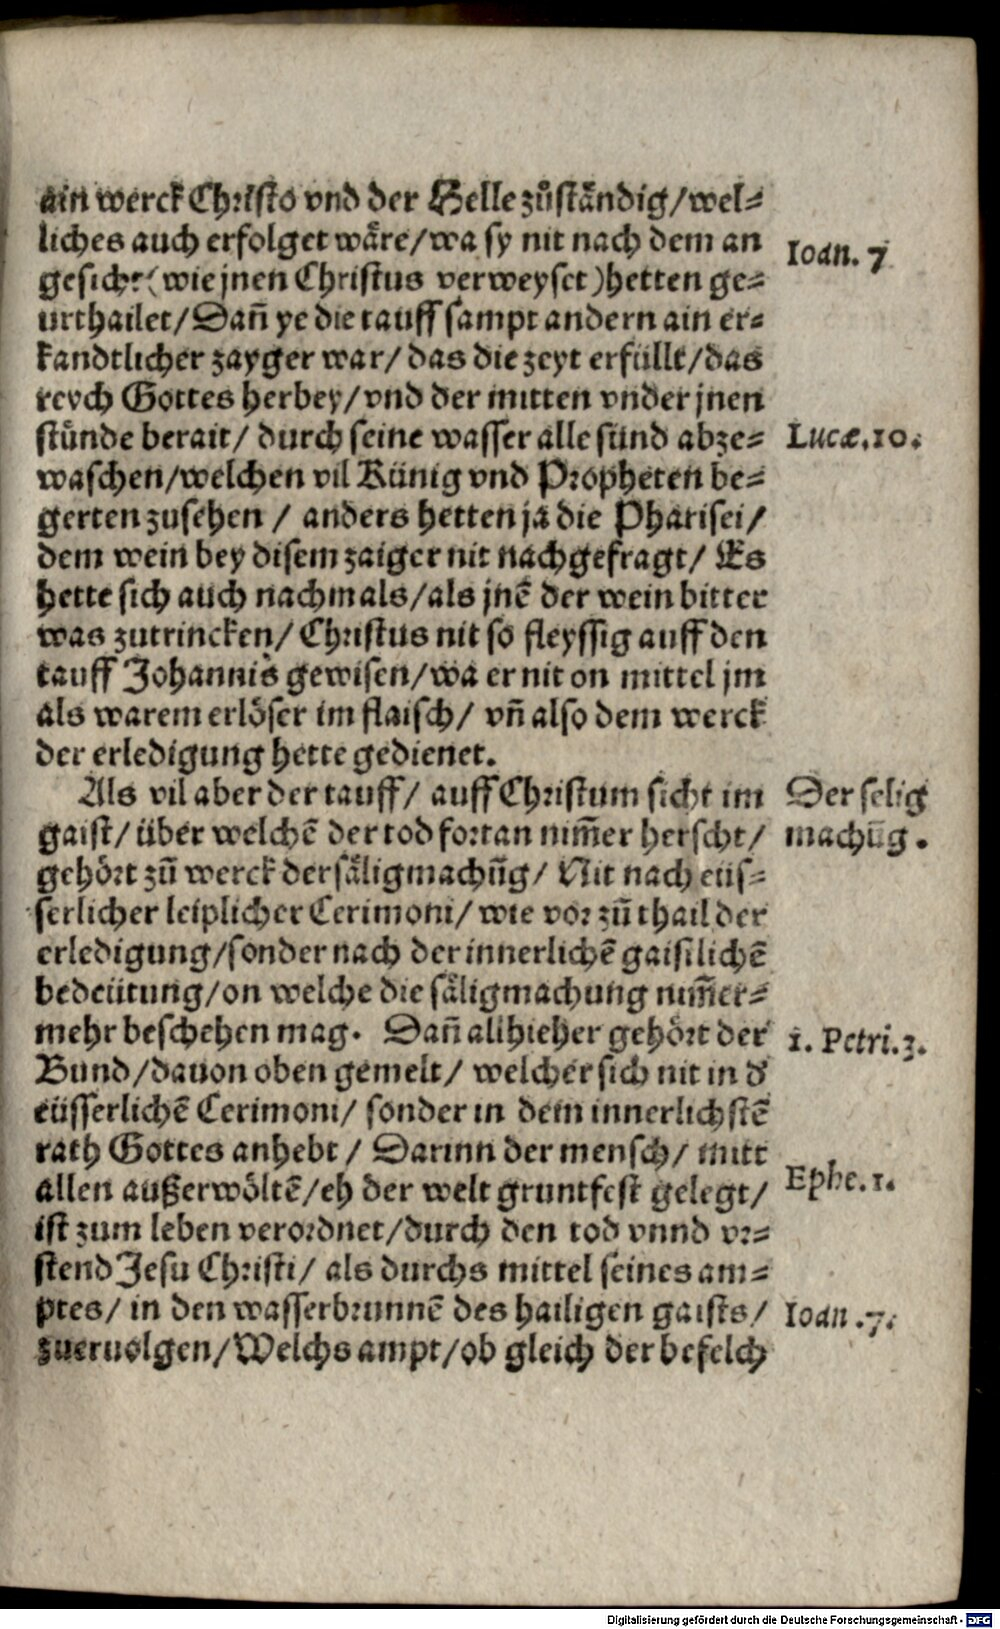 ain werck Christo vnd der Helle zůständig/wel⸗
liches auch erfolget wäre/wa sy nit nach dem an
gesicht (wie jnen Christus verweyset) hetten ge⸗
urthailet/Dañ ye die tauff sampt andern ain er⸗
kandtlicher zayger war/das die zeyt erfüllt/das
reych Gottes herbey/vnd der mitten vnder jnen
stünde berait/ durch seine wasser alle sünd abze⸗
waschen/welchen vil Künig vnd Propheten be⸗
gerten zusehen / anders hetten ja die Pharisei/
dem wein bey disem zaiger nit nachgefragt/ Es
hette sich auch nachmals/als jnē der wein bitter
was zutrincken/ Christus nit so fleyssig auff den
tauff Johannis gewisen/wa er nit on mittel jm
als warem erlöser im flaisch/ vñ also dem werck
der erledigung hette gedienet.
Als vil aber der tauff/ auff Christum sicht im
gaist/über welchē der tod fortan nim̄er herscht/
gehört zū werck der säligmachūg/ Nit nach eüs⸗
serlicher leiplicher Cerimoni/ wie vor zū thail der
erledigung/sonder nach der innerlichē gaistlichē
bedeütung/on welche die säligmachung nim̄er⸗
mehr beschehen mag. Dañ allhieher gehört der
Bund/dauon oben gemelt/ welcher sich nit in d'
eüsserlichē Cerimoni/ sonder in dem innerlichstē
rath Gottes anhebt / Darinn der mensch/ mitt
allen außerwöltē/eh der welt gruntfest gelegt/
ist zum leben verordnet/durch den tod vnnd vr⸗
stend Jesu Christi/ als durchs mittel seines am⸗
ptes/ in den wasserbrunnē des hailigen gaists/
zueruolgen/Welchs ampt/ob gleich der befelch
Ioan. 7
Lucæ.10.
Der selig
machūg.
1. Petri.3.
Ephe.1.
Ioan .7.
Digitalisierung gefördert durch die Deutsche Forschungsgemeinschaft - DFG